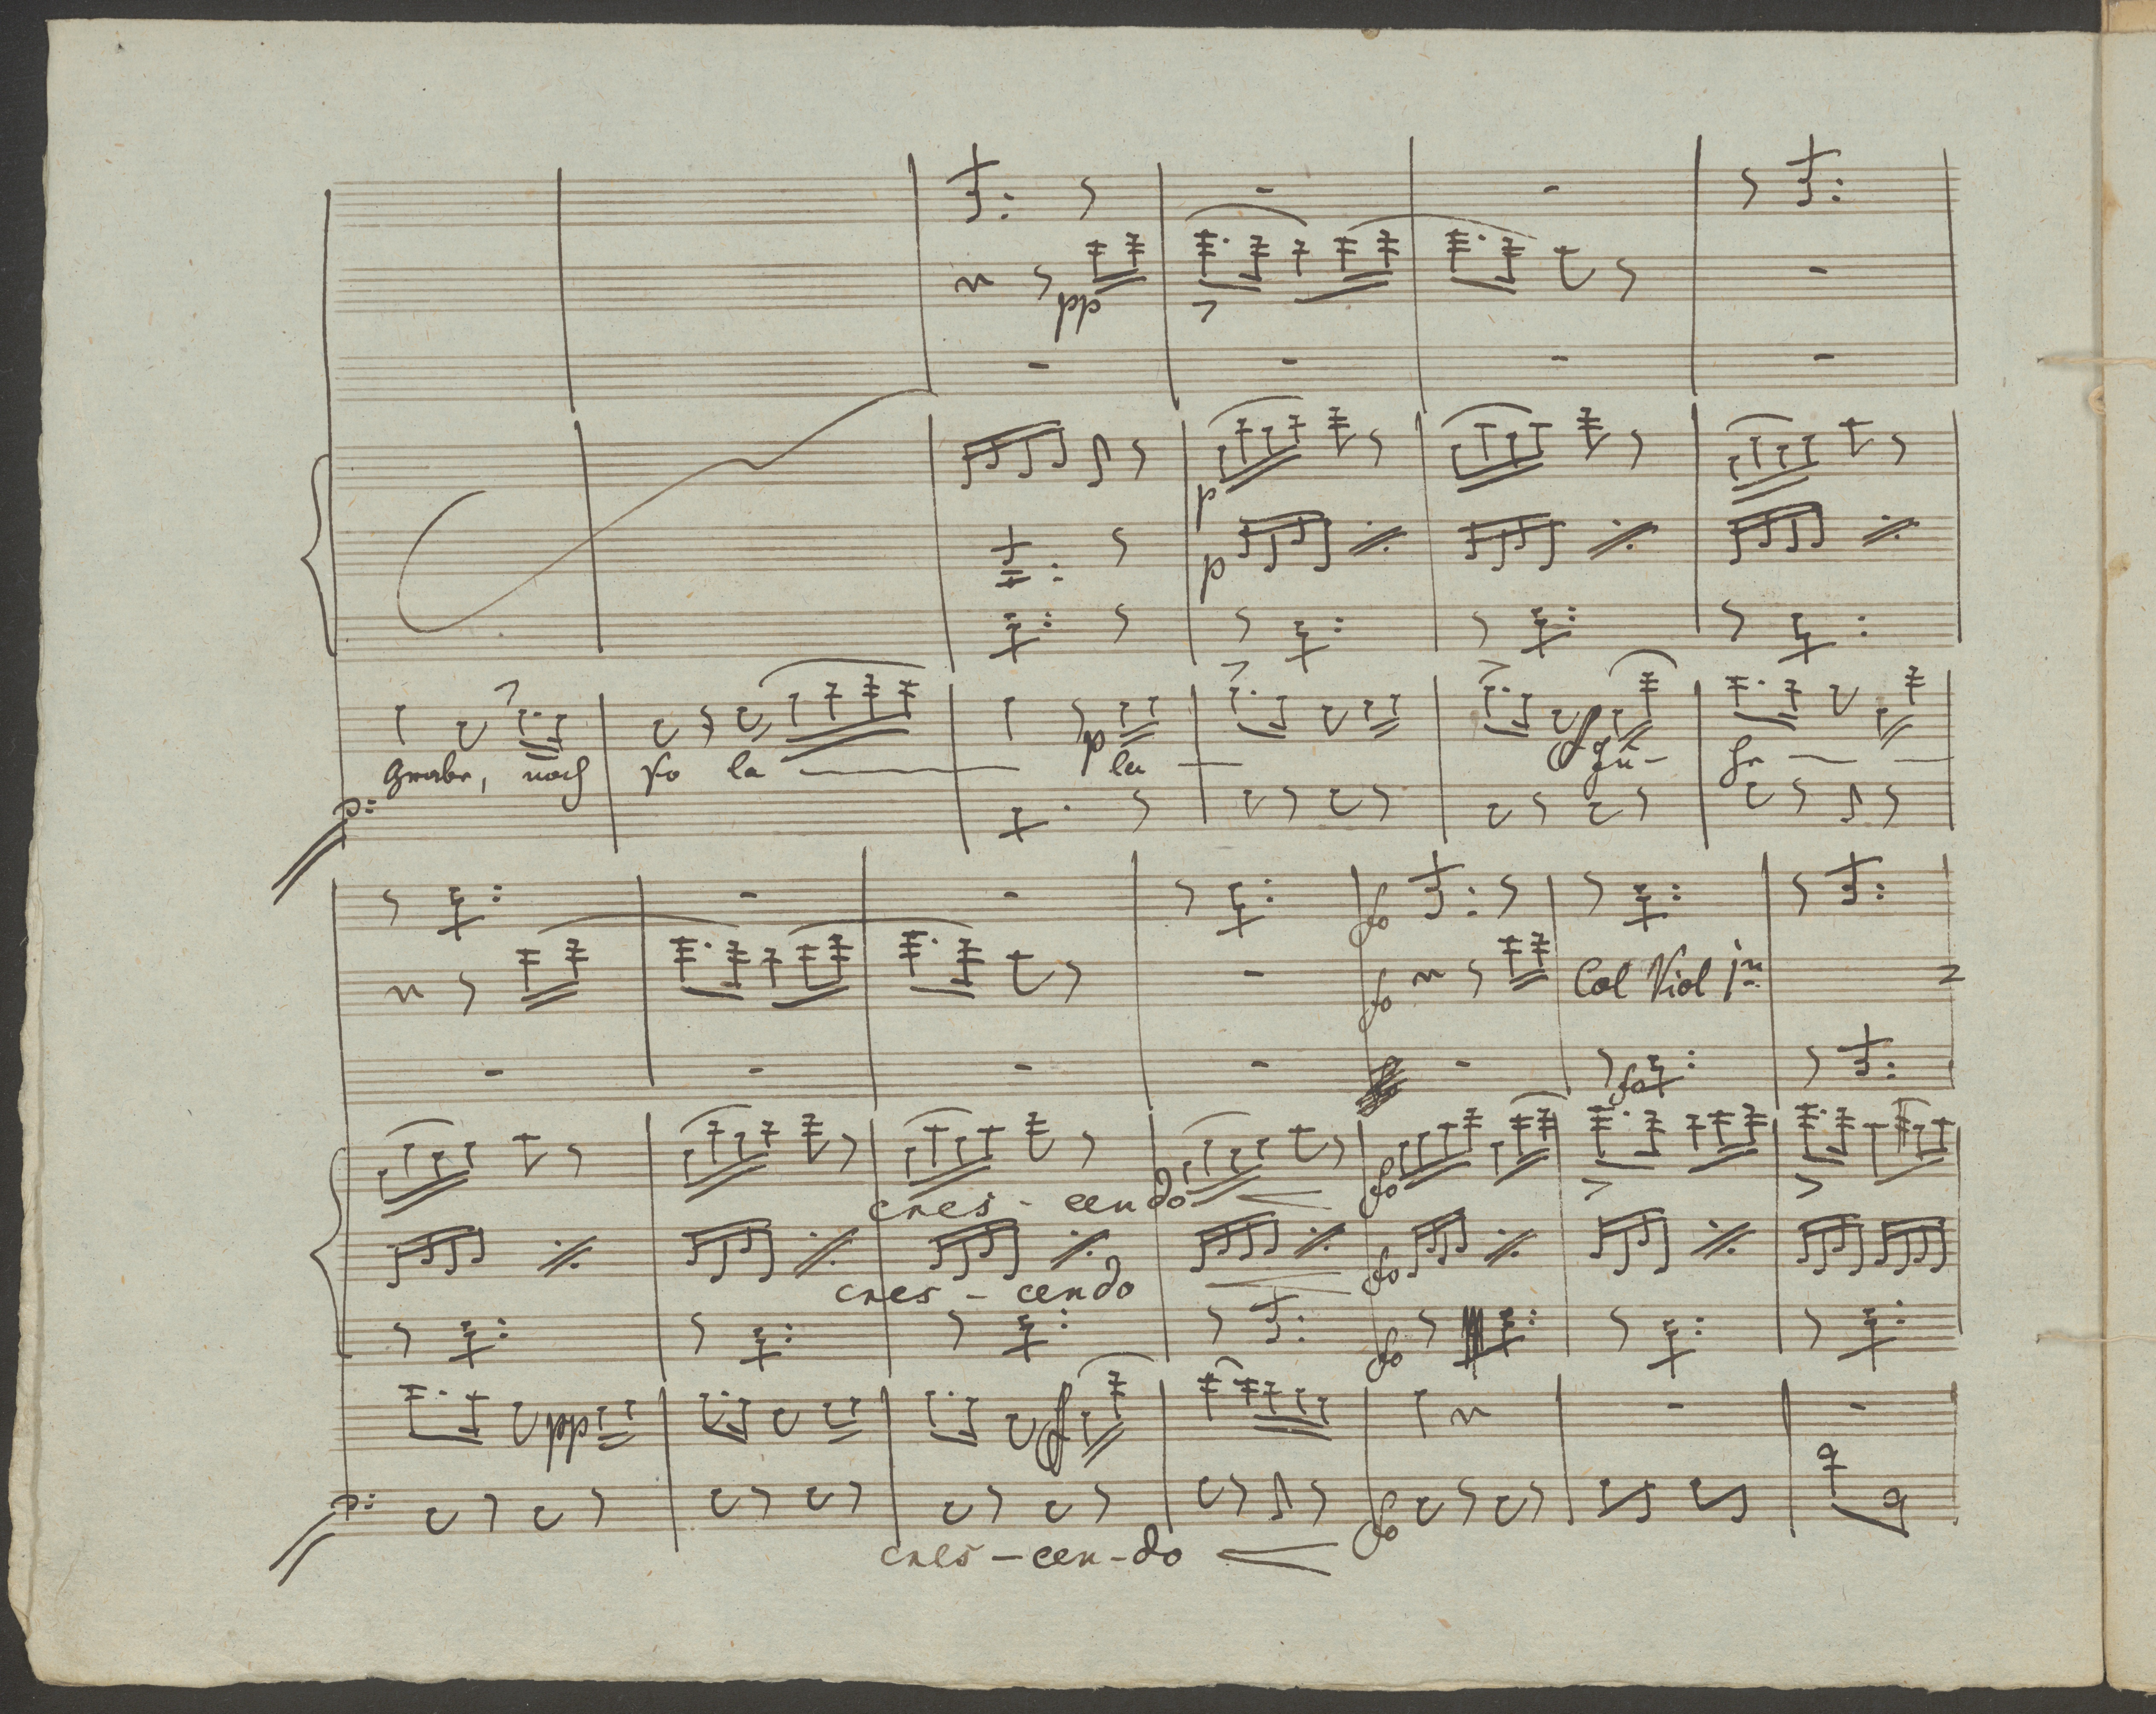 pp
p
p
p
Grabe, noch so la la
p:
fo
fo
Col Viol 1mo
fo
cres - cendo
fo
cres - cendo
fo
fo
pp
p:
fo
cres - cen - do